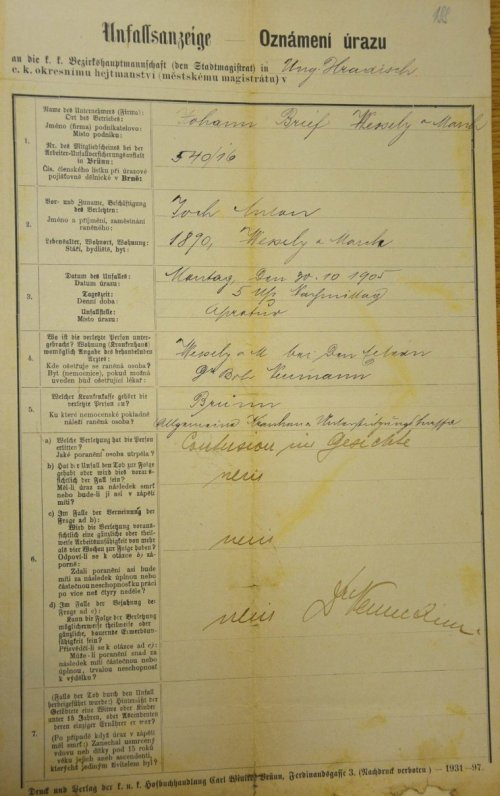 185
Unfallsanzeige — Oznámení úrazu
an die k. k. Bezirkshauptmannschaft (den Stadtmagistrat) in Ung. Hradisch
c. k. okresnímu hejtmanství (městskému magistrátu) v
1.
Name des Unternehmers (Firma):
Ort des Betriebes:
Jméno (firma) podnikatelovo:
Místo podniku:
Johann Brief Wessely a March
Nr. des Mitgliedscheines bei der
Arbeiter-Unfallversicherungsanstalt
in Brünn:
Čís. členského lístku při úrazové
pojišťovně dělnické v Brně:
540/16
2.
Vor- und Zuname, Beschäftigung
des Verletzten:
Jméno a příjmení, zaměstnání
raněného:
Anton
Lebensalter, Wohnort, Wohnung:
Stáří, bydliště, byt:
1890, Wessely a March
3.
Datum des Unfalles:
Datum úrazu:
Montag, den 30. 10 1905
Tageszeit:
Denní doba:
5 Uhr Nachmittag
Unfallstelle:
Místo úrazu:
Apretur
4.
Wo ist die verletzte Person unter-
gebracht? Wohnung (Krankenhaus)
womöglich Angabe des behandelnden
Arztes:
Kde ošetřuje se raněná osoba?
Byt (nemocnice), pokud možná
uveden buď ošetřující lékař:
Wessely a M. bei den Eltern
Dr Neumann
5.
Welcher Krankenkasse gehört die
verletzte Person an?
Ku které nemocenské pokladně
náleží raněná osoba?
Brünn
Allgemeine Kranken Unterstützungskassa
6.
a) Welche Verletzung hat die Person
erlitten?
Jaké poranění osoba utrpěla?
Contusion im Gesichte
b) Hat der Unfall den Tod zur Folge
gehabt oder wird dies voraus-
sichtlich der Fall sein?
Měl-li úraz za následek smrť
nebo bude-li ji asi v zápětí
míti?
nein
c) Im Falle der Verneinung der
Frage ad b):
Wird die Verletzung voraus-
sichtlich eine gänzliche oder theil-
weise Arbeitsunfähigkeit von mehr
als vier Wochen zur Folge haben?
Odpoví-li se k otázce b) zá-
porně:
Zdali poranění asi bude
míti za následek úplnou nebo
částečnou neschopnosť ku práci
po více než čtyry neděle?
nein
d) Im Falle der Bejahung der
Frage ad c):
Kann die Folge der Verletzung
möglicherweise theilweise oder
gänzliche, dauernde Erwerbsun-
fähigkeit sein?
Přisvědčí-li se k otázce ad c):
Může-li poranění snad za
následek míti částečnou nebo
úplnou, trvalou neschopnosť
k výdělku?
nein Dr Neumann
7.
(Falls der Tod durch den Unfall
herbeigeführt wurde:) Hinterläßt der
Getödtete eine Witwe oder Kinder
unter 15 Jahren, oder Ascendenten
deren einziger Ernährer er war?
(Po případě když úraz v zápětí
měl smrť:) Zanechal usmrcený
vdovu neb dítky pod 15 roků
věku jejich aneb ascendenti,
kterýchž jediným živitelem byl?
Druck und Verlag der k. u. k. Hofbuchhandlung Carl Winiker Brünn, Ferdinandsgasse 3. (Nachdruck verboten) — 1931—97.